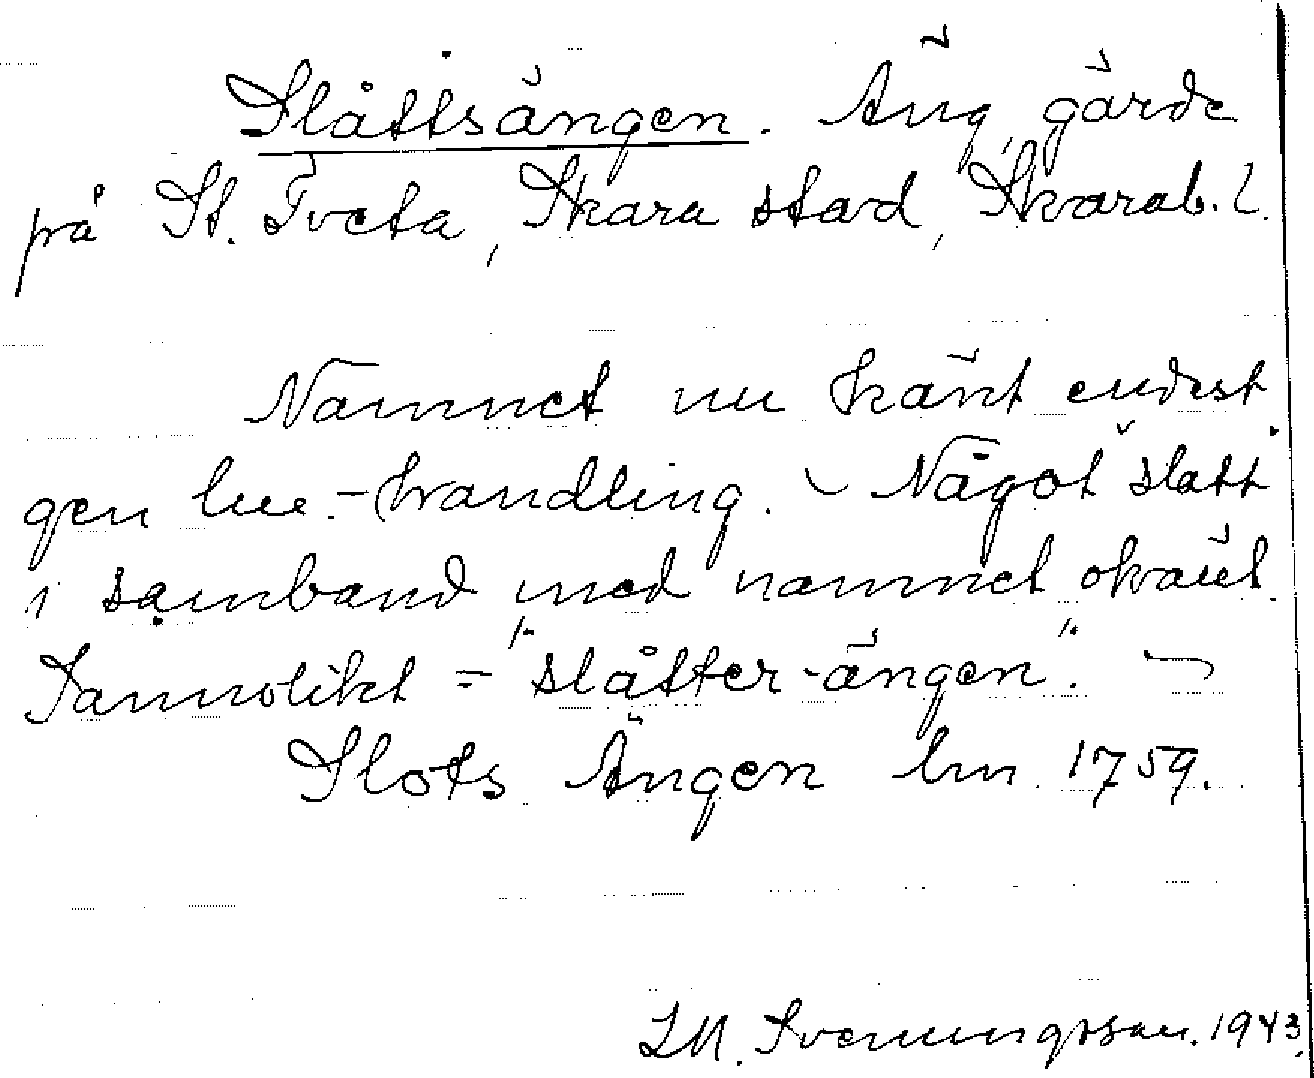 Slåttsängen. Äng, gärde
på St. Tveta, Skara stad, Skarab. l.
Namnet nu känt endast
gen lm-handling. – Något slått
i samband med namnet okänt.
Sannolikt = "slåtter-ängen". –
Slots Ängen lm 1759.
LM. Svenungsson. 1943.